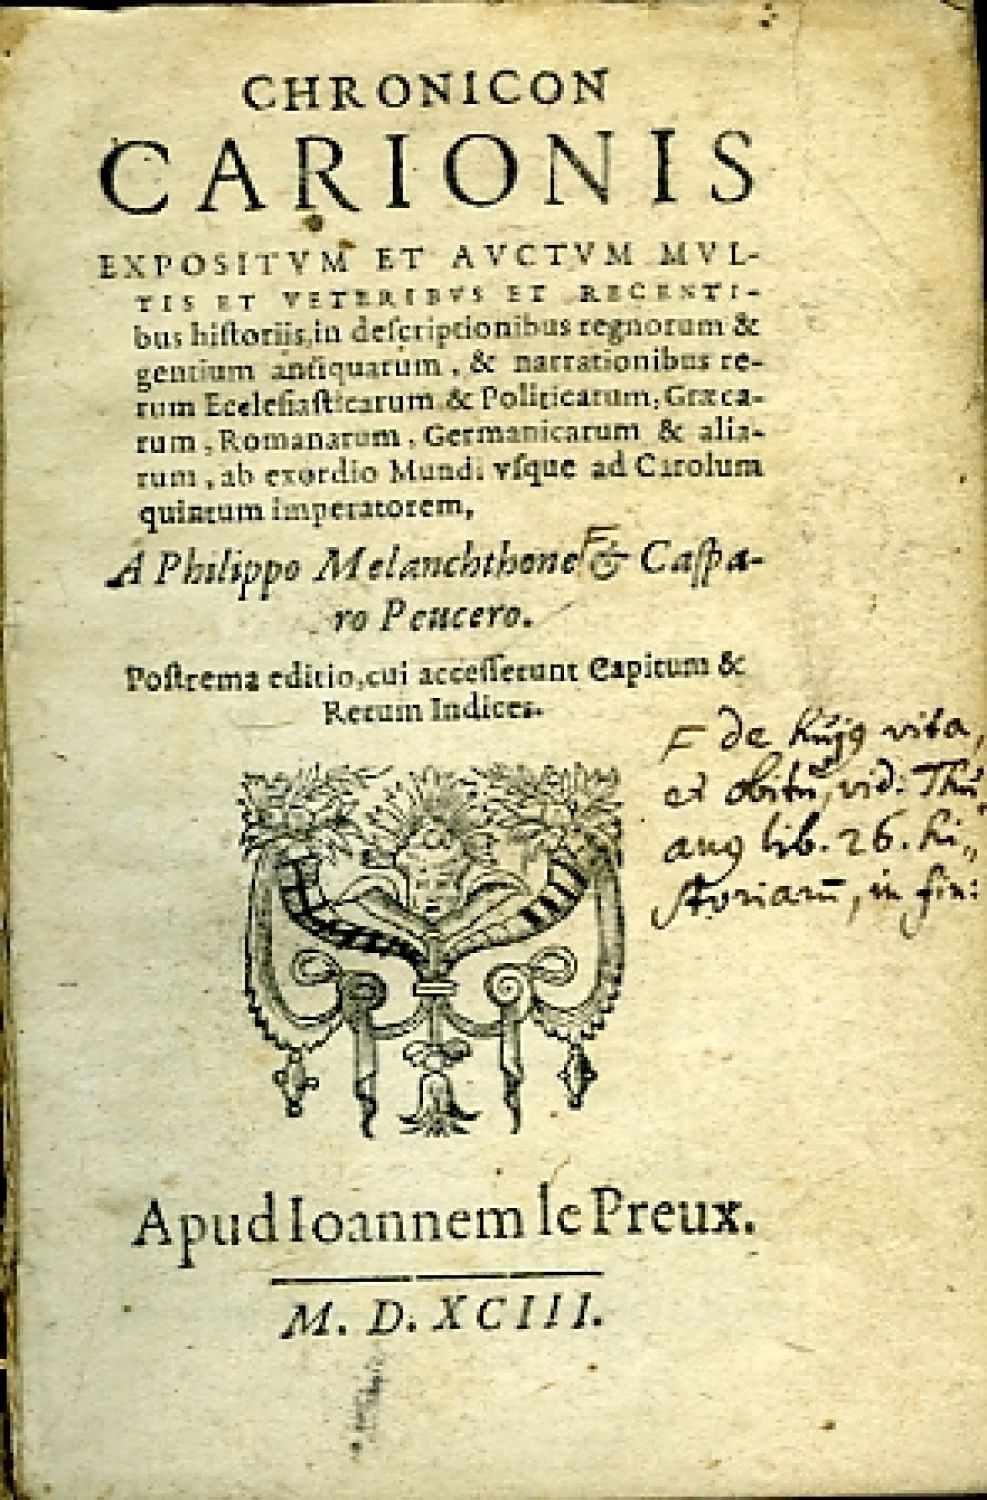 CHRONICON
CARIONIS
EXPOSITVM ET AVCTVM MVL-
TIS ET VETERIBVS ET RECENTI-
bus hiſtoriis, in deſcriptionibus regnorum &
gentium antiquarum, & narrationibus re-
rum Eccleſiaſticarum & Politicarum, Græca-
rum, Romanarum, Germanicarum & alia-
rum, ab exordio Mundi vſque ad Carolum
quintum imperatorem,
A Philippo Melanchthone F & Caſpa-
ro Peucero.
Poſtrema editio, cui acceſſerunt Capitum &
Rerum Indices.
F de huj9 vita,
et obitũ, vid: Thu
an9 lib. 26. hi„
ſtoriarū, in fin:
Apud Ioannem le Preux.
M. D. XCIII.